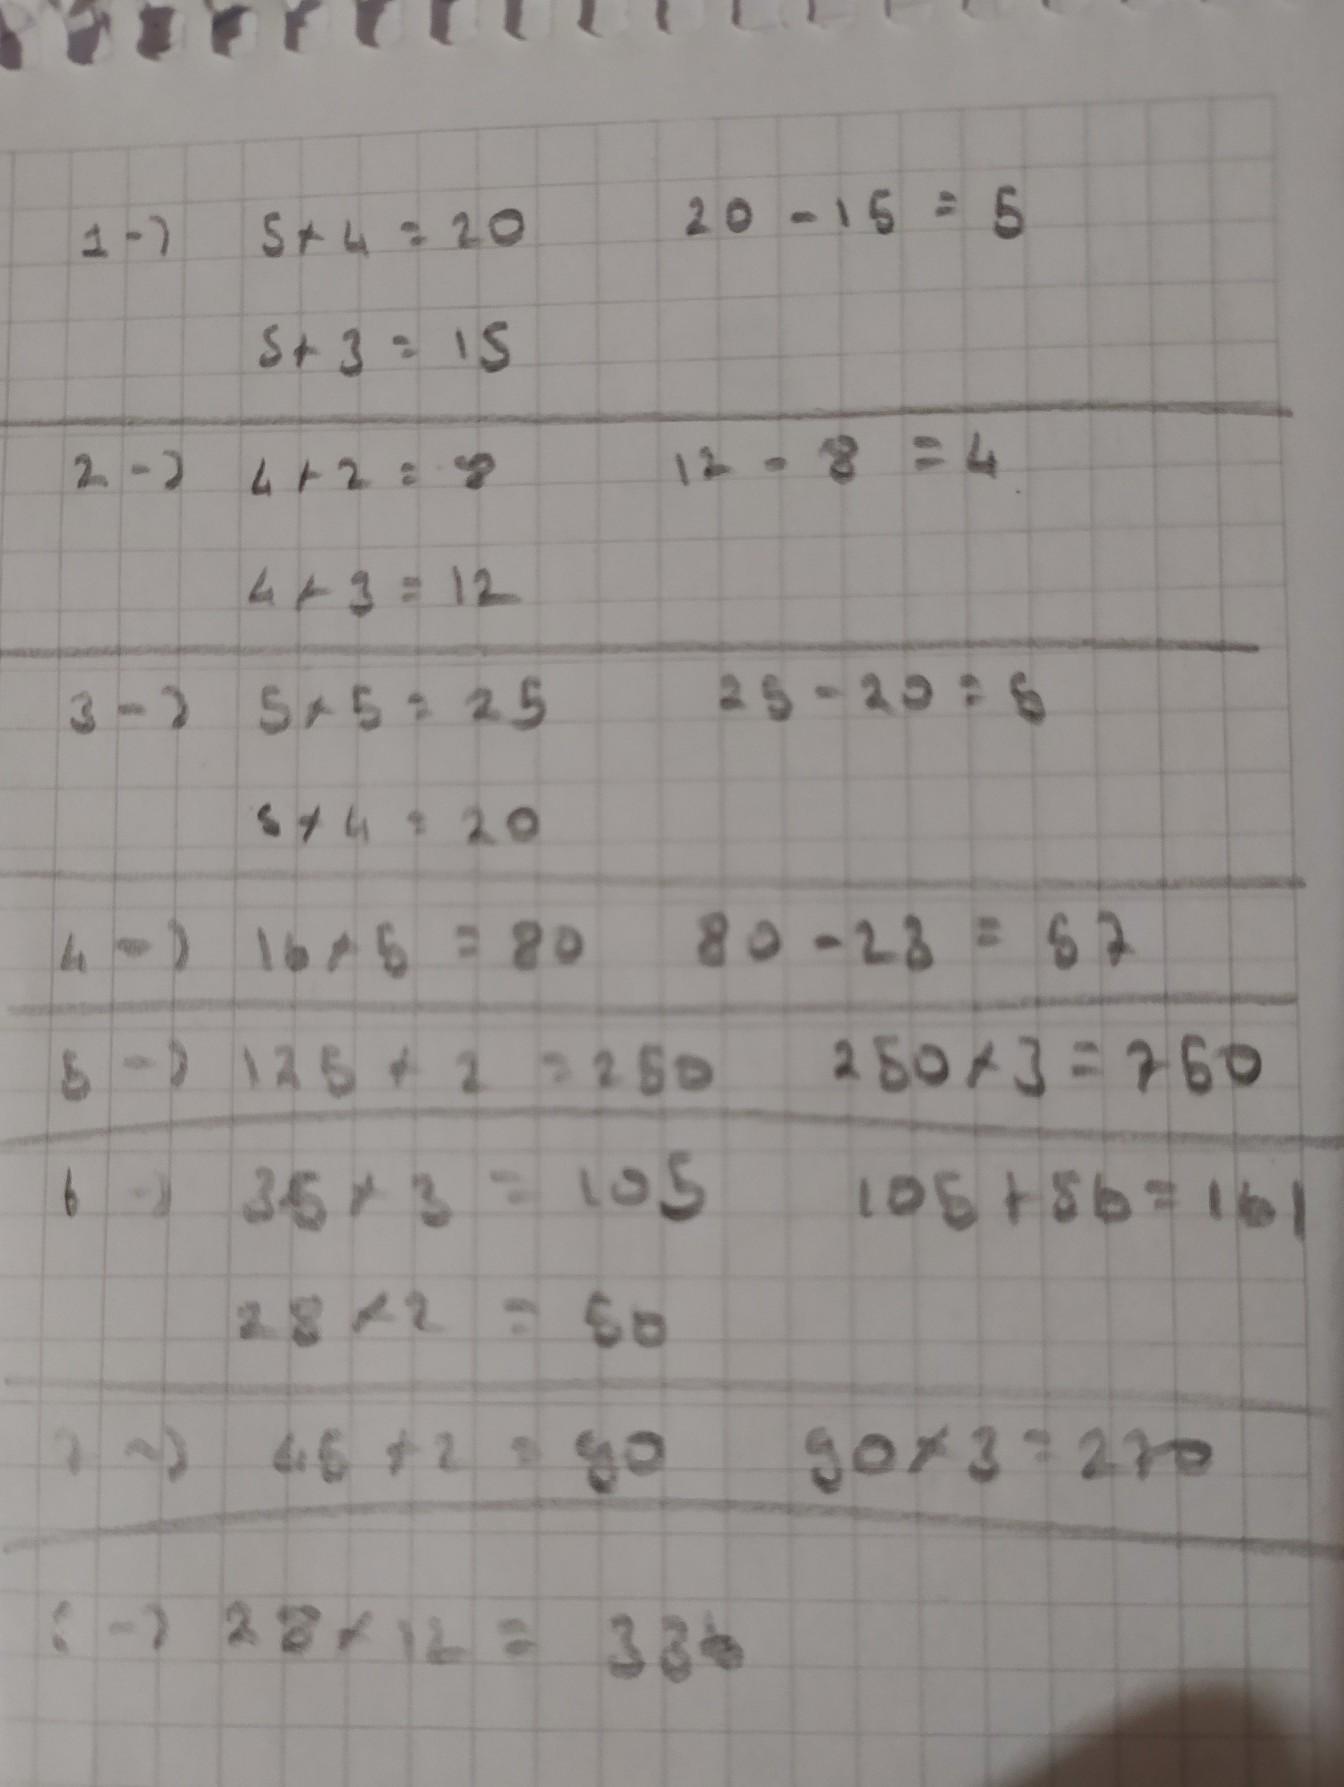 1-) 5x4 = 20 20 - 15 = 5
5x3 = 15
2-) 4x2 = 8 12 - 8 = 4
4x3 = 12
3-) 5x5 = 25 25 - 20 = 5
5x4 = 20
4-) 16x5 = 80 80 - 23 = 57
5-) 125x2 = 250 250x3 = 750
6-) 35x3 = 105 105+56 = 161
28x2 = 56
7-) 45x2 = 90 90x3 = 270
28x12 = 336